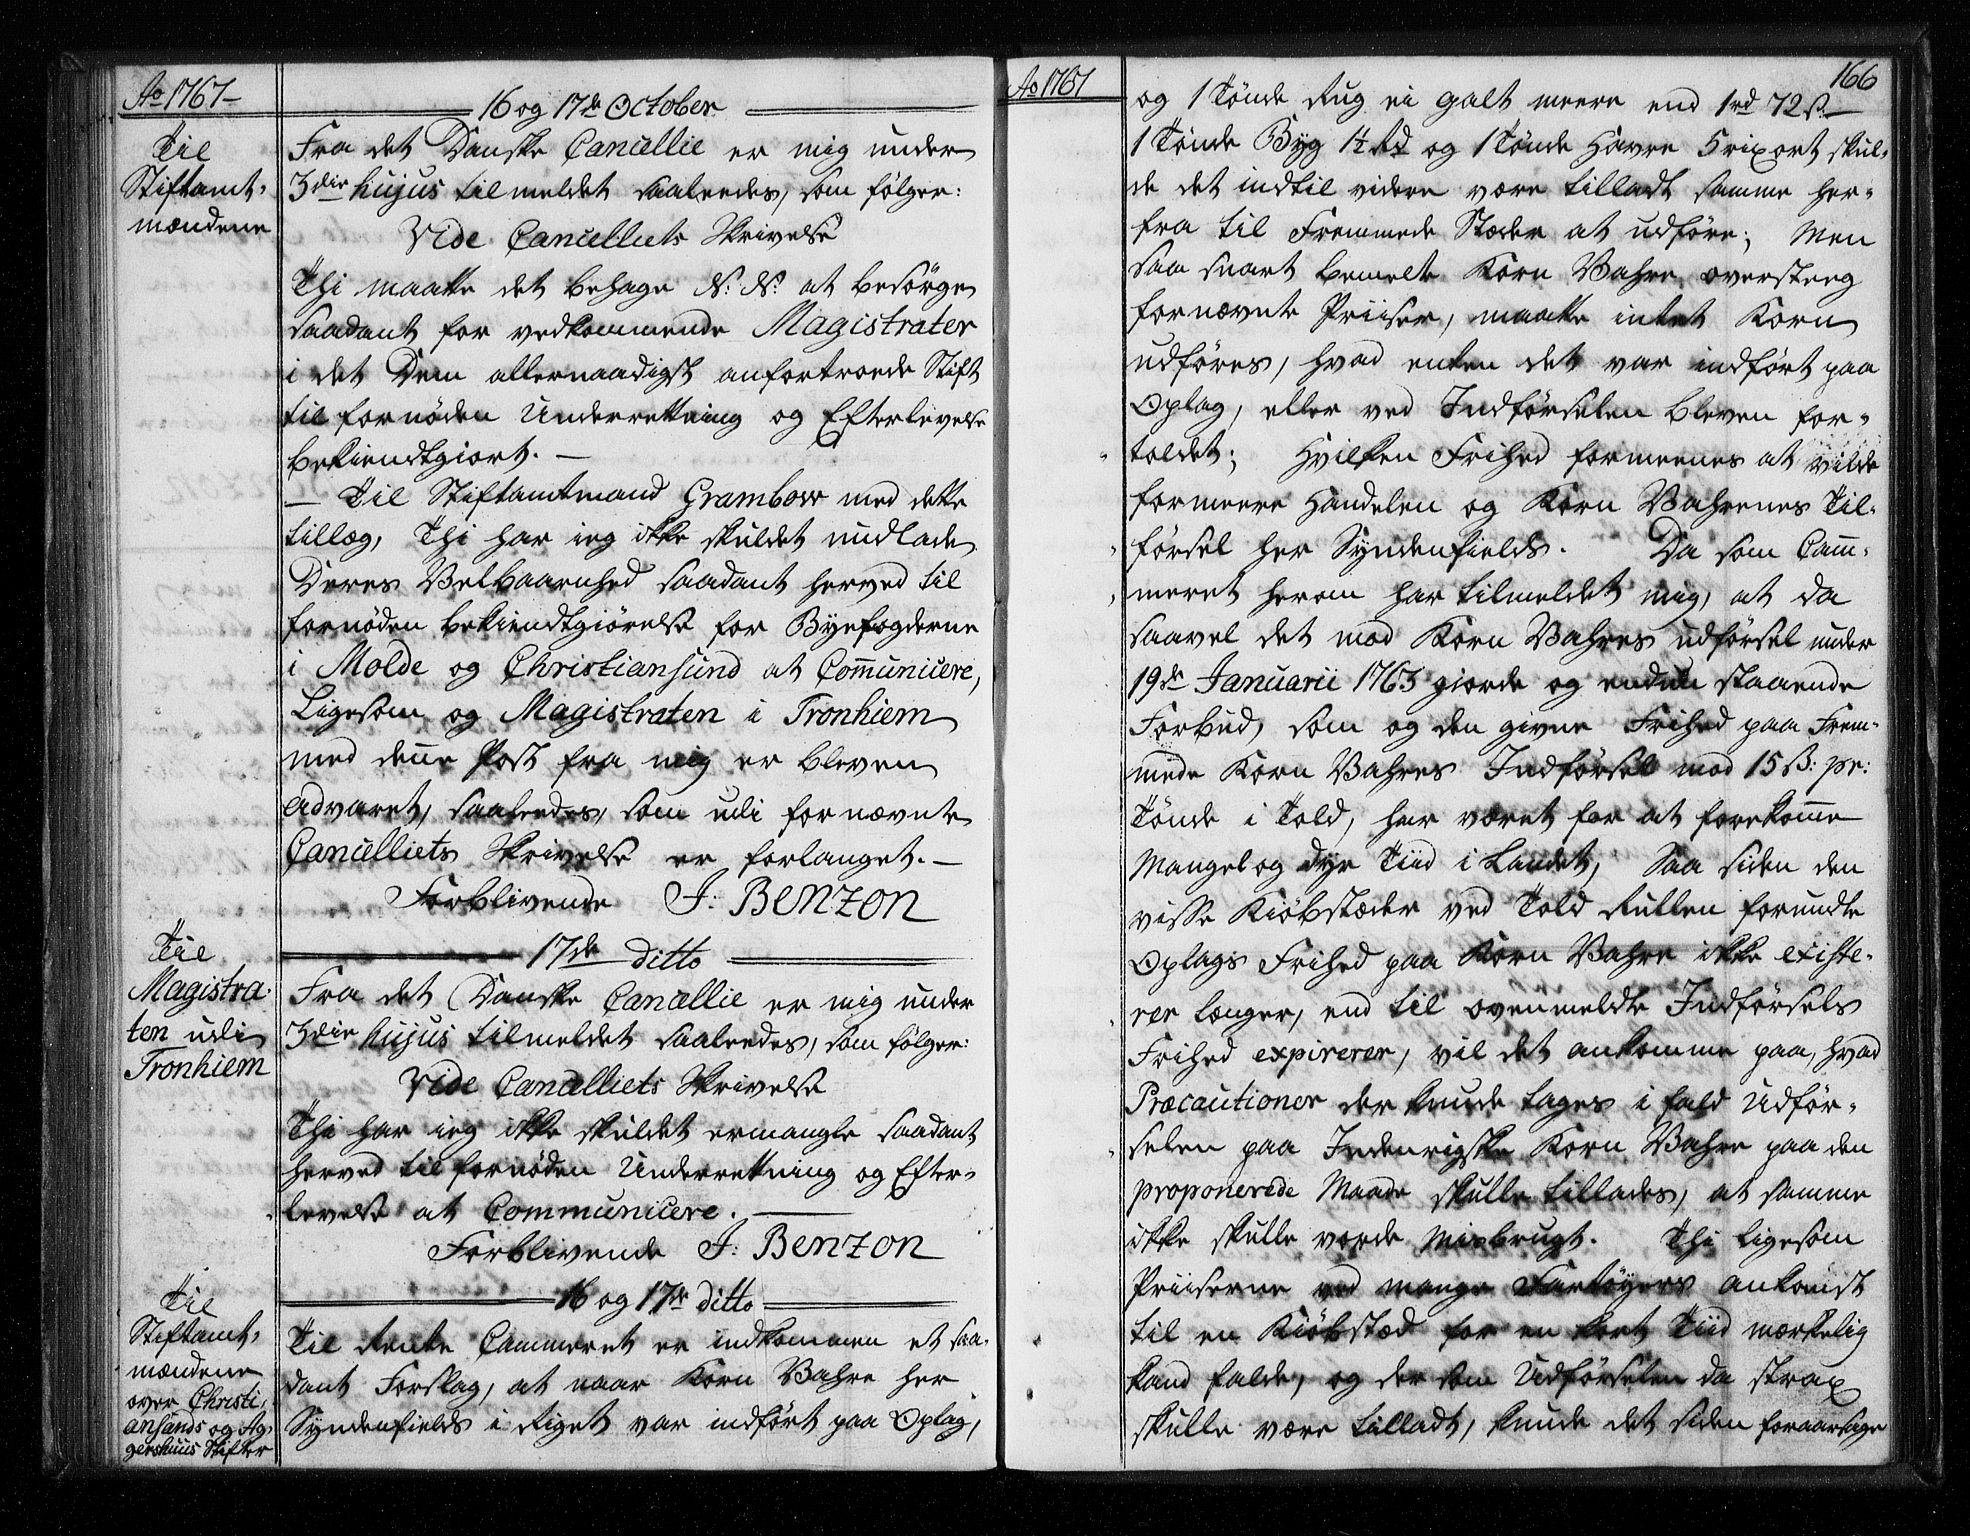 Ao 1767
16 og 17de October
Til
Stiftamt-
mændene
Fra det Danske Cancellie er mig under
3die hujus tilmeldet saaledes, som følger:
Vide Cancelliets Skrivelse
Thi maatte det behage N: N: at besörge
saadant for vedkommende Magistrater
i det Dem allernaadigst anfortroede Stift
til fornøden Underretning og Efterlevelse
bekiendtgiort. —
— Til Stiftamtmand Grambow med dette
tillæg, Thi har ieg ikke skuldet undlade
Deres Velbaarnhed saadant herved til
fornøden bekiendtgiörelse for Byefogderne
i Molde og Christiansund at Com̅unicere,
Ligesom og Magistraten i Tronhiem
med den̅e Post fra mig er bleven
advaret, saaledes, som udi fornævnte
Cancelliets Skrivelse er forlanget. —
Forblivende J: Benzon
17de ditto
Til
Magistra-
ten udi
Tronhiem
Fra det Danske Cancellie er mig under
3die hujus tilmeldet saaledes, som følger:
Vide Cancelliets Skrivelse
Thi har ieg ikke skuldet ermangle saadant
herved til fornøden Underretning og Efter-
levelse at Communicere.
Forblivende J: Benzon
16 og 17de ditto
Til
Stiftamt-
mændene
over Christi-
ansands og Ag-
gershuus Stifter
Til Rente Cammeret er indkommen et saa-
dant Forslag, at naar Korn Vahre her
Syndenfields i Riget var indført paa Oplag,
Ao 1767
166
og 1 Tønde Rug ei galt meere end 1rd 72 ß —
1 Tønde Byg 1½ Rd og 1 Tønde Havre 5 rixort skul-
de det indtil videre være tilladt samme her-
fra til Fremmede Stæder at udføre; Men
saa snart bemelte Korn Vahre oversteeg
fornævnte Priiser, maatte intet Korn
udføres, hvad enten det var indført paa
Oplag, eller ved Indførselen bleven for-
toldet; Hvilken Frihed formeenes at vilde
formeere Handelen og Korn Vahrenes Til-
førsel her Syndenfields. Da som Cam̅-
meret herom har tilmeldet mig, at da
saavel det mod Korn Vahres udførsel under
19de Januarii 1763 giorde og endnu staaende
Forbud, som og den givne Frihed paa Frem-
mede Korn Vahres Indførsel mod 15 ß: pr:
Tønde i Told, har været for at forekom̅e
Mangel og dyr Tiid i Landet, Saa siden den
visse Kiöbstæder ved Told Rullen forundte
Oplags Frihed paa Korn Vahre ikke existe-
rer længer, end til ovenmeldte Indførsels
Frihed expirerer, vil det ankomme paa, hvad
Præcautioner der kunde tages i fald Udfør-
selen paa Indenrigske Korn Vahre paa den
proponerede Maade skulle tillades, at samme
ikke skulle vorde misbrugt. Thi ligesom
Priiserne ved mange Fartøyers ankomst
til en Kiöbstæd for en kort Tiid mærkelig
kand falde, og dersom Udførselen da strax
skulle være tilladt, kunde det siden foraarsage